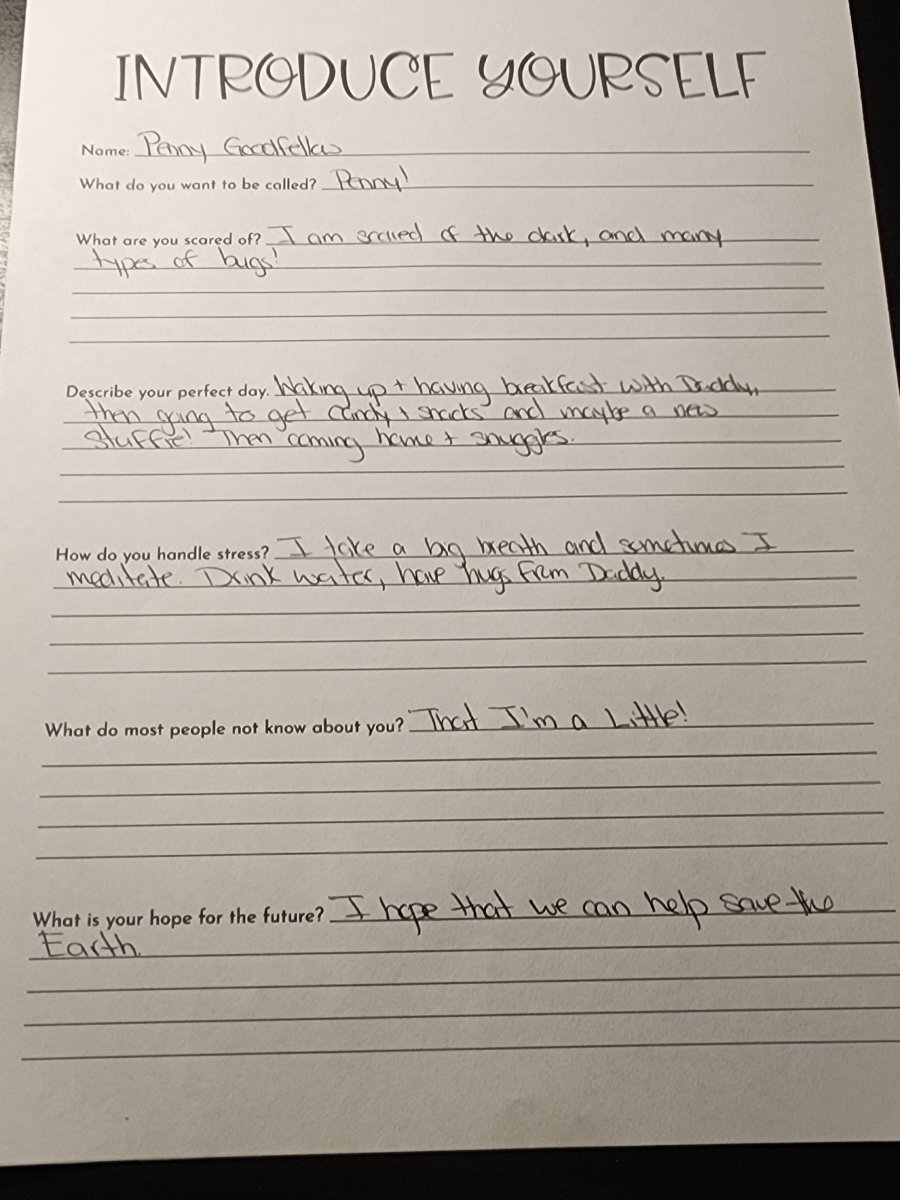 INTRODUCE YOURSELF
Name: Penny Goodfellow
What do you want to be called? Penny!
What are you scared of? I am scared of the dark, and many
types of bugs!
Describe your perfect day. Waking up + having breakfast with Daddy,
then going to get candy + snacks and maybe a new
stuffie! Then coming home + snuggles.
How do you handle stress? I take a big breath and sometimes I
meditate. Drink water, have hugs from Daddy.
What do most people not know about you? That I'm a Little!
What is your hope for the future? I hope that we can help save the
Earth.